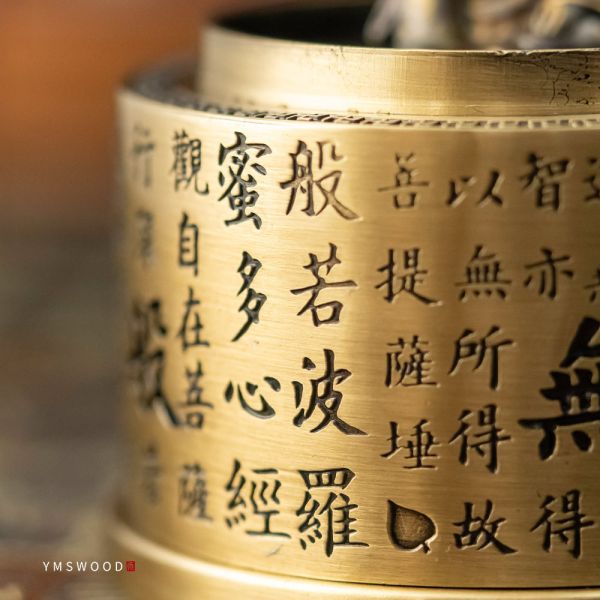 智亦無得
以無所得故
菩提薩埵
般若波羅
蜜多心經
觀自在菩薩
行深般若
YMSWOOD